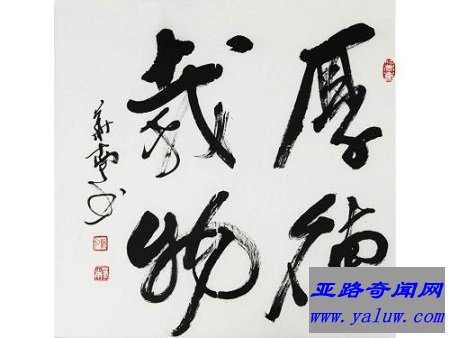 厚德
載物
亚路奇闻网
www.yaluw.com